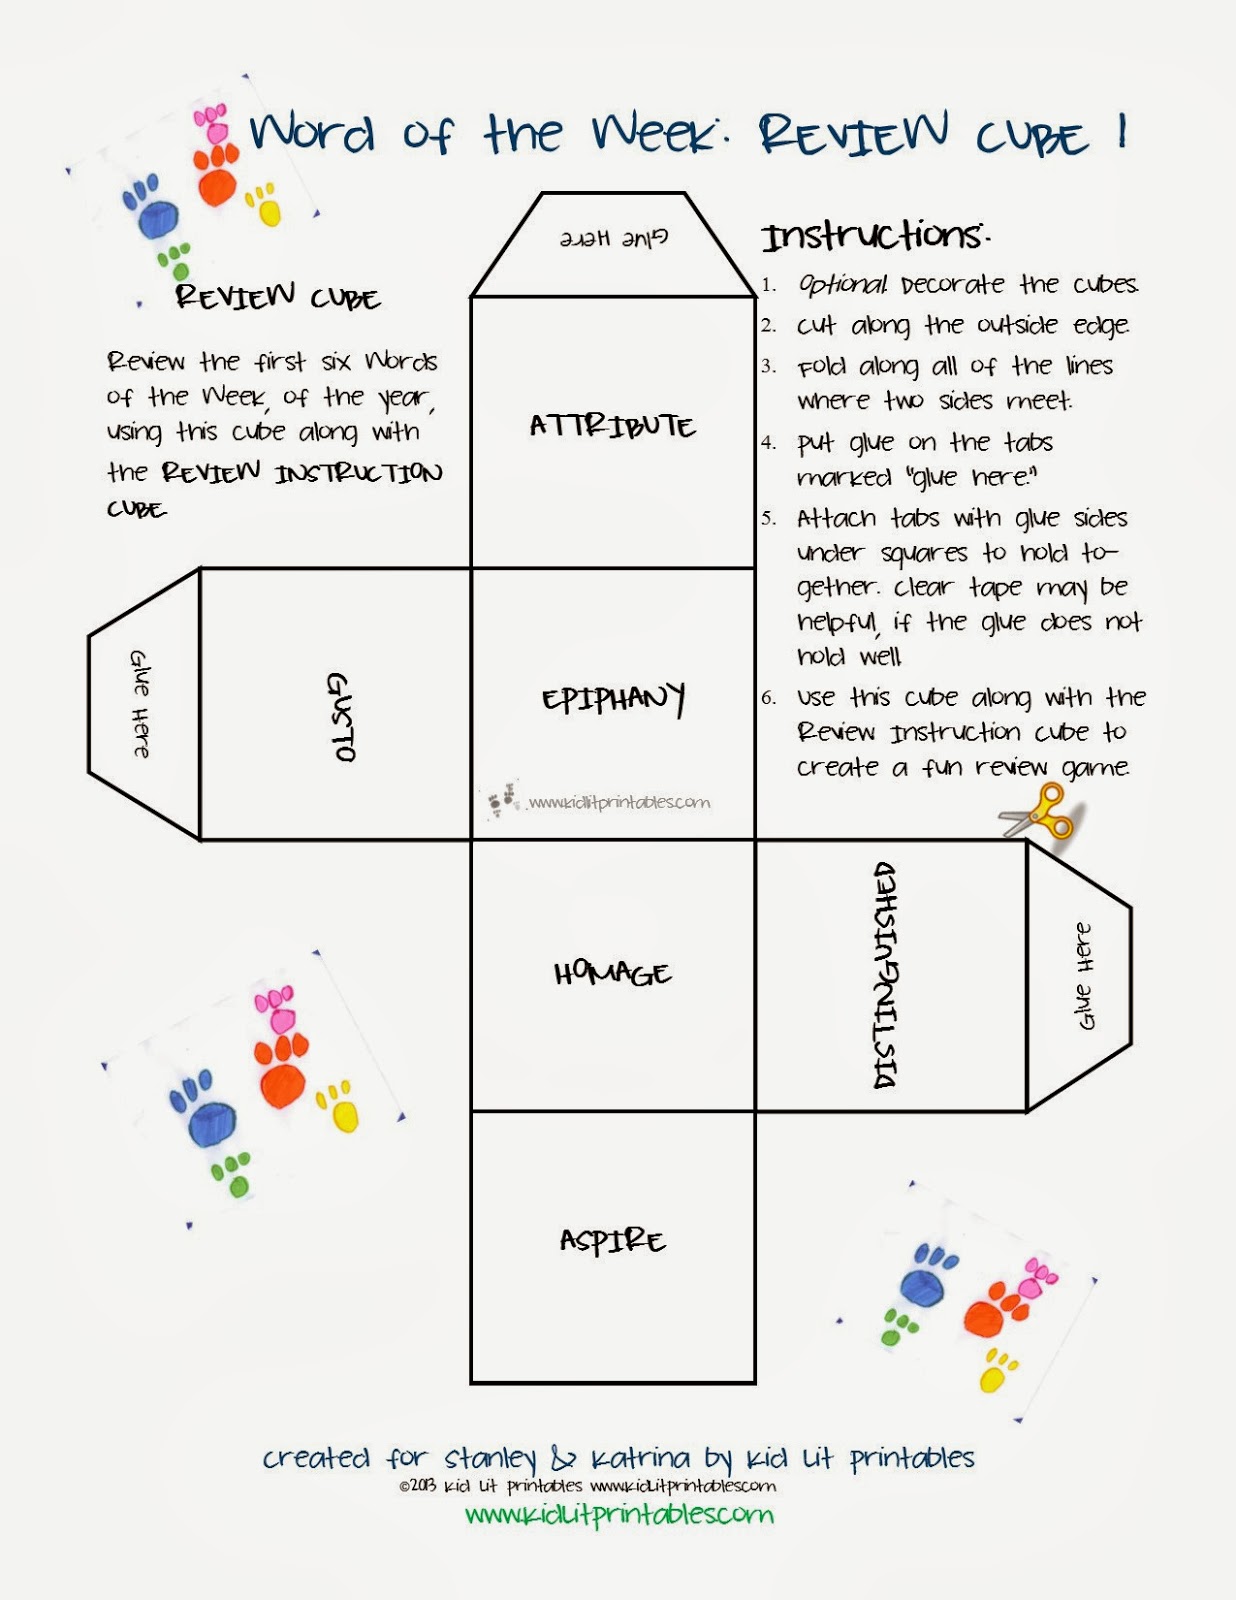 Word of the Week: REVIEW CUBE 1
REVIEW CUBE
Review the first six Words
of the Week, of the year,
using this cube along with
the REVIEW INSTRUCTION
CUBE
Glue Here
ATTRIBUTE
Instructions:
1. Optional. Decorate the cubes.
2. Cut along the outside edge.
3. Fold along all of the lines
where two sides meet.
4. Put glue on the tabs
marked "glue here."
5. Attach tabs with glue sides
under squares to hold to-
gether. Clear tape may be
helpful, if the glue does not
hold well.
6. Use this cube along with the
Review Instruction Cube to
create a fun review game.
Glue Here
GUSTO
EPIPHANY
www.kidlitprintables.com
HOMAGE
DISTINGUISHED
Glue Here
ASPIRE
Created for Stanley & Katrina by Kid Lit Printables
©2013 Kid Lit Printables www.KidLitPrintables.com
www.KidLitPrintables.com